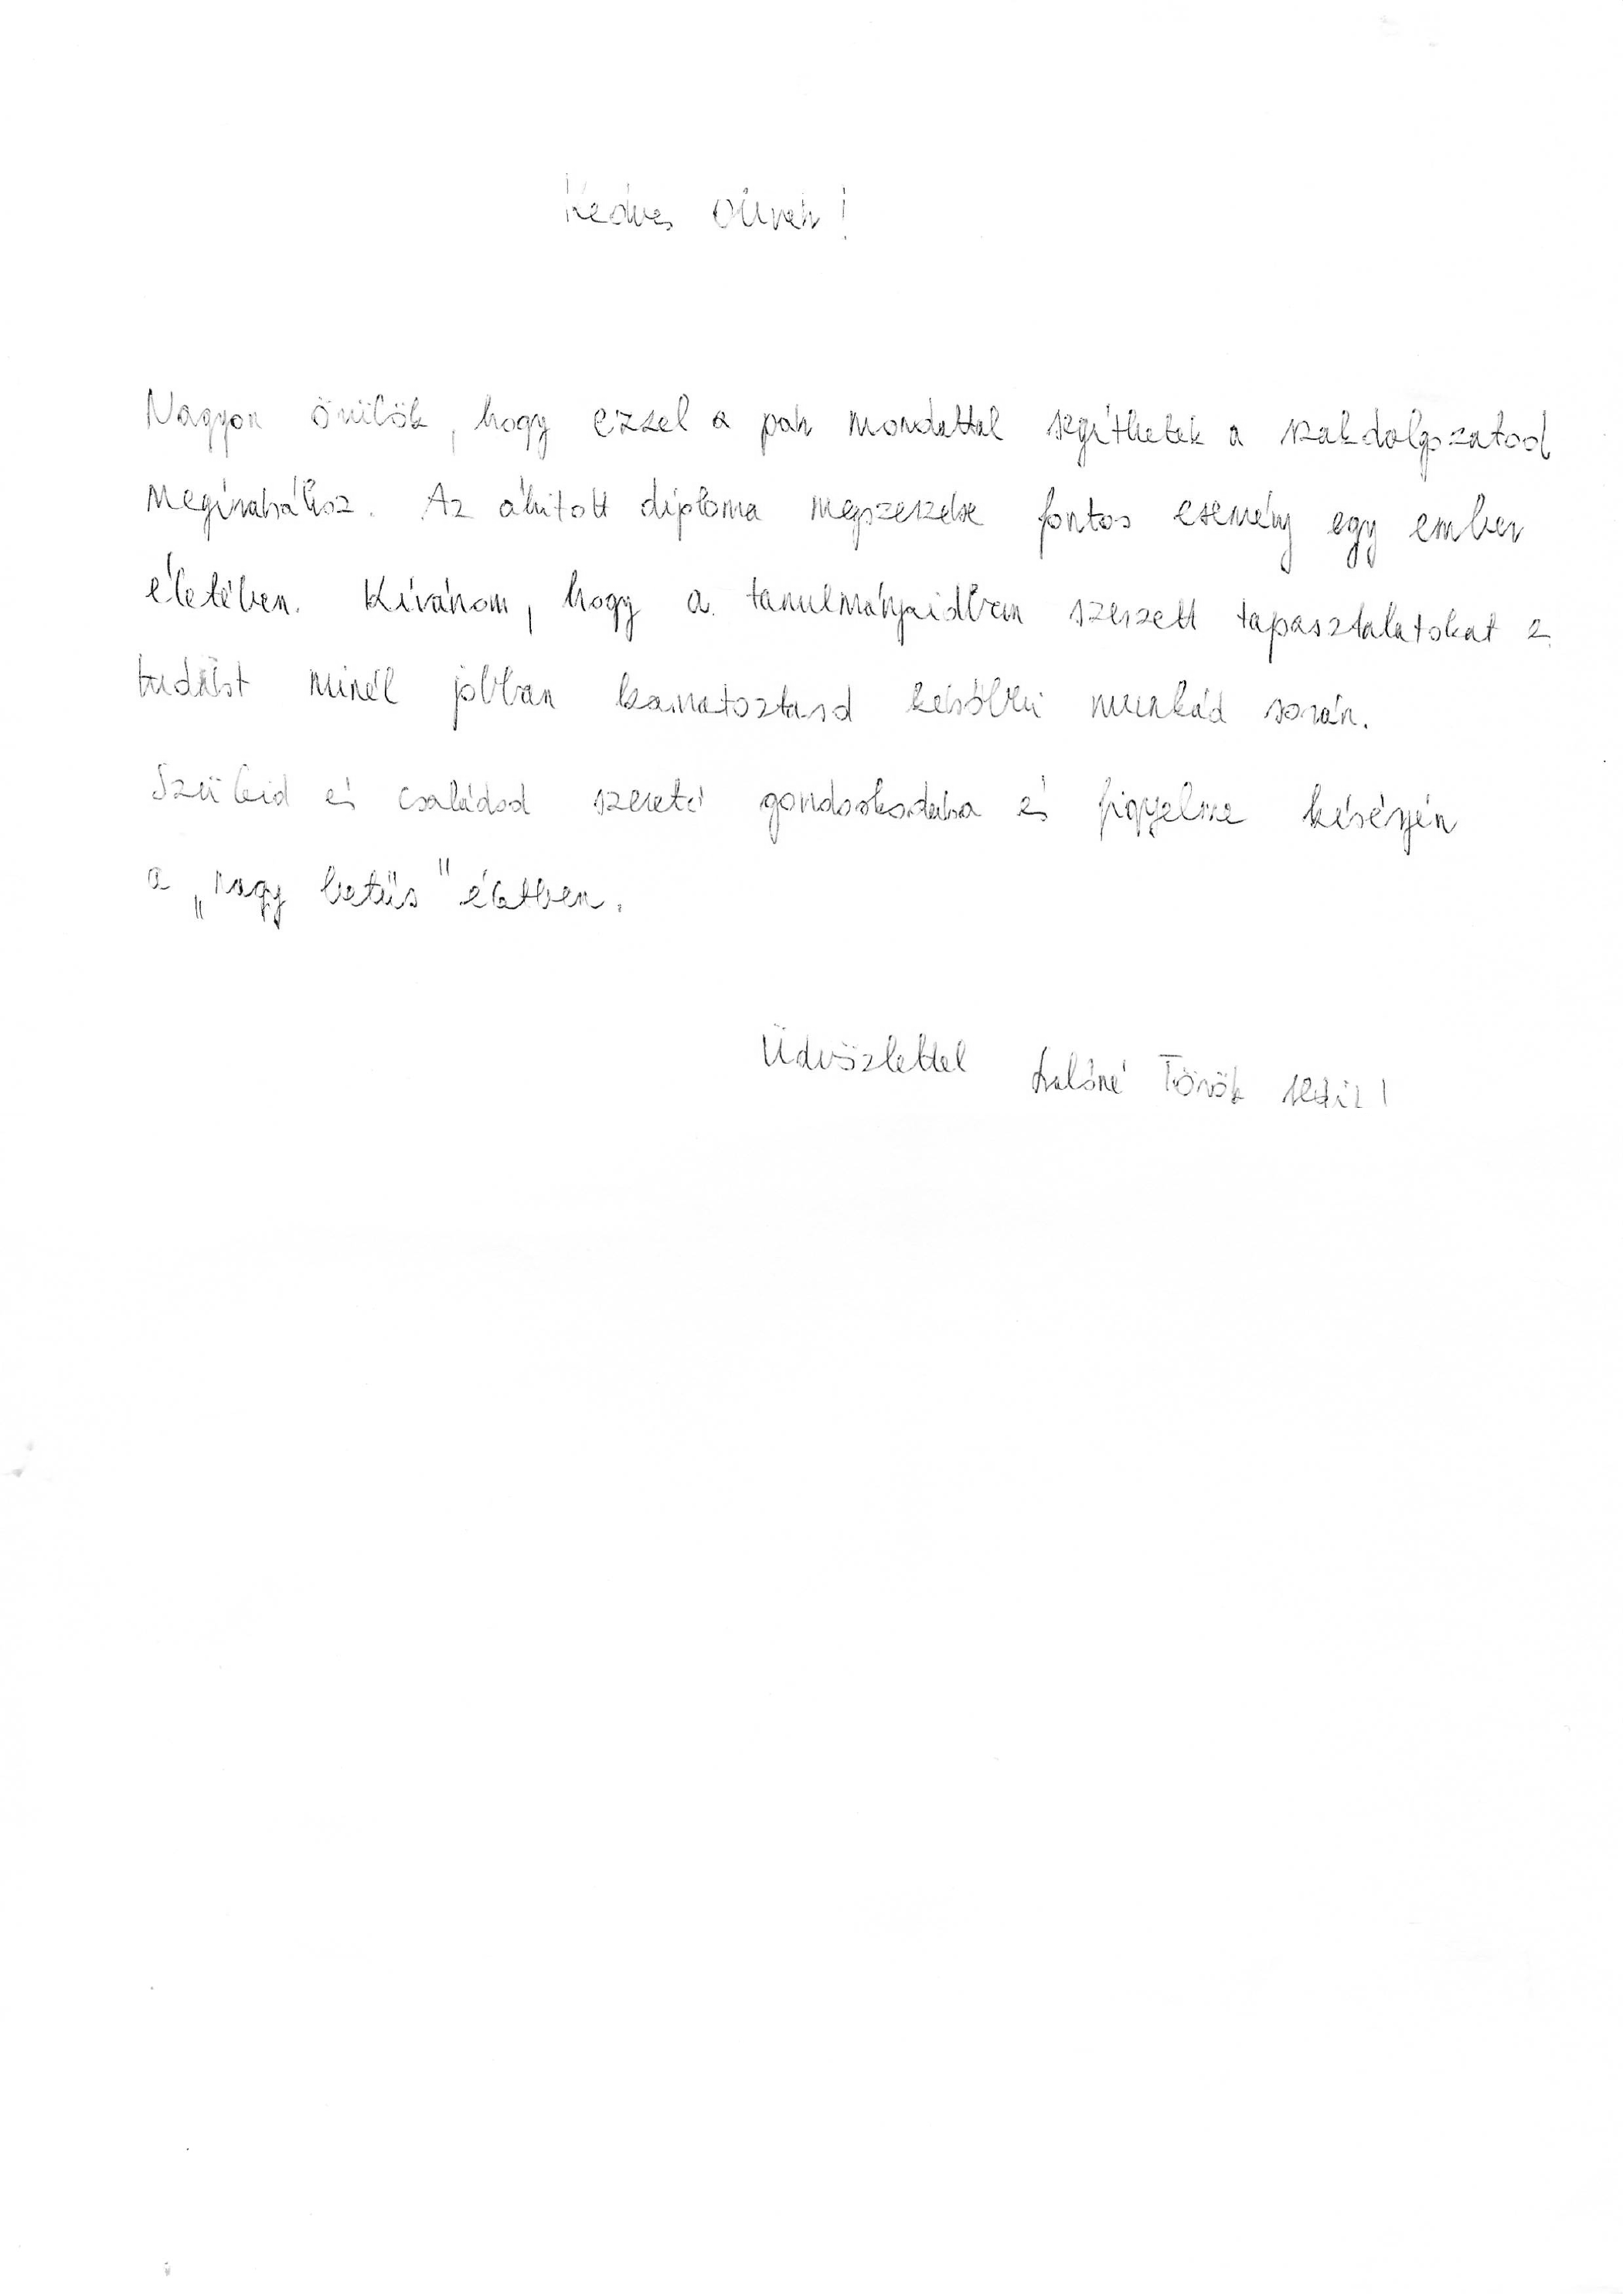 Kedves Olivér!
Nagyon örülök, hogy ezzel a pár mondattal segíthetek a szakdolgozatod
megírásához. Az áhított diploma megszerzése fontos esemény egy ember
életében. Kívánom, hogy a tanulmányaidban szerzett tapasztalatokat s
tudást minél jobban kamatoztasd későbbi munkád során.
Szüleid és családod szerető gondoskodása és figyelme kísérjen
a „nagy betűs" életben.
Üdvözlettel Török